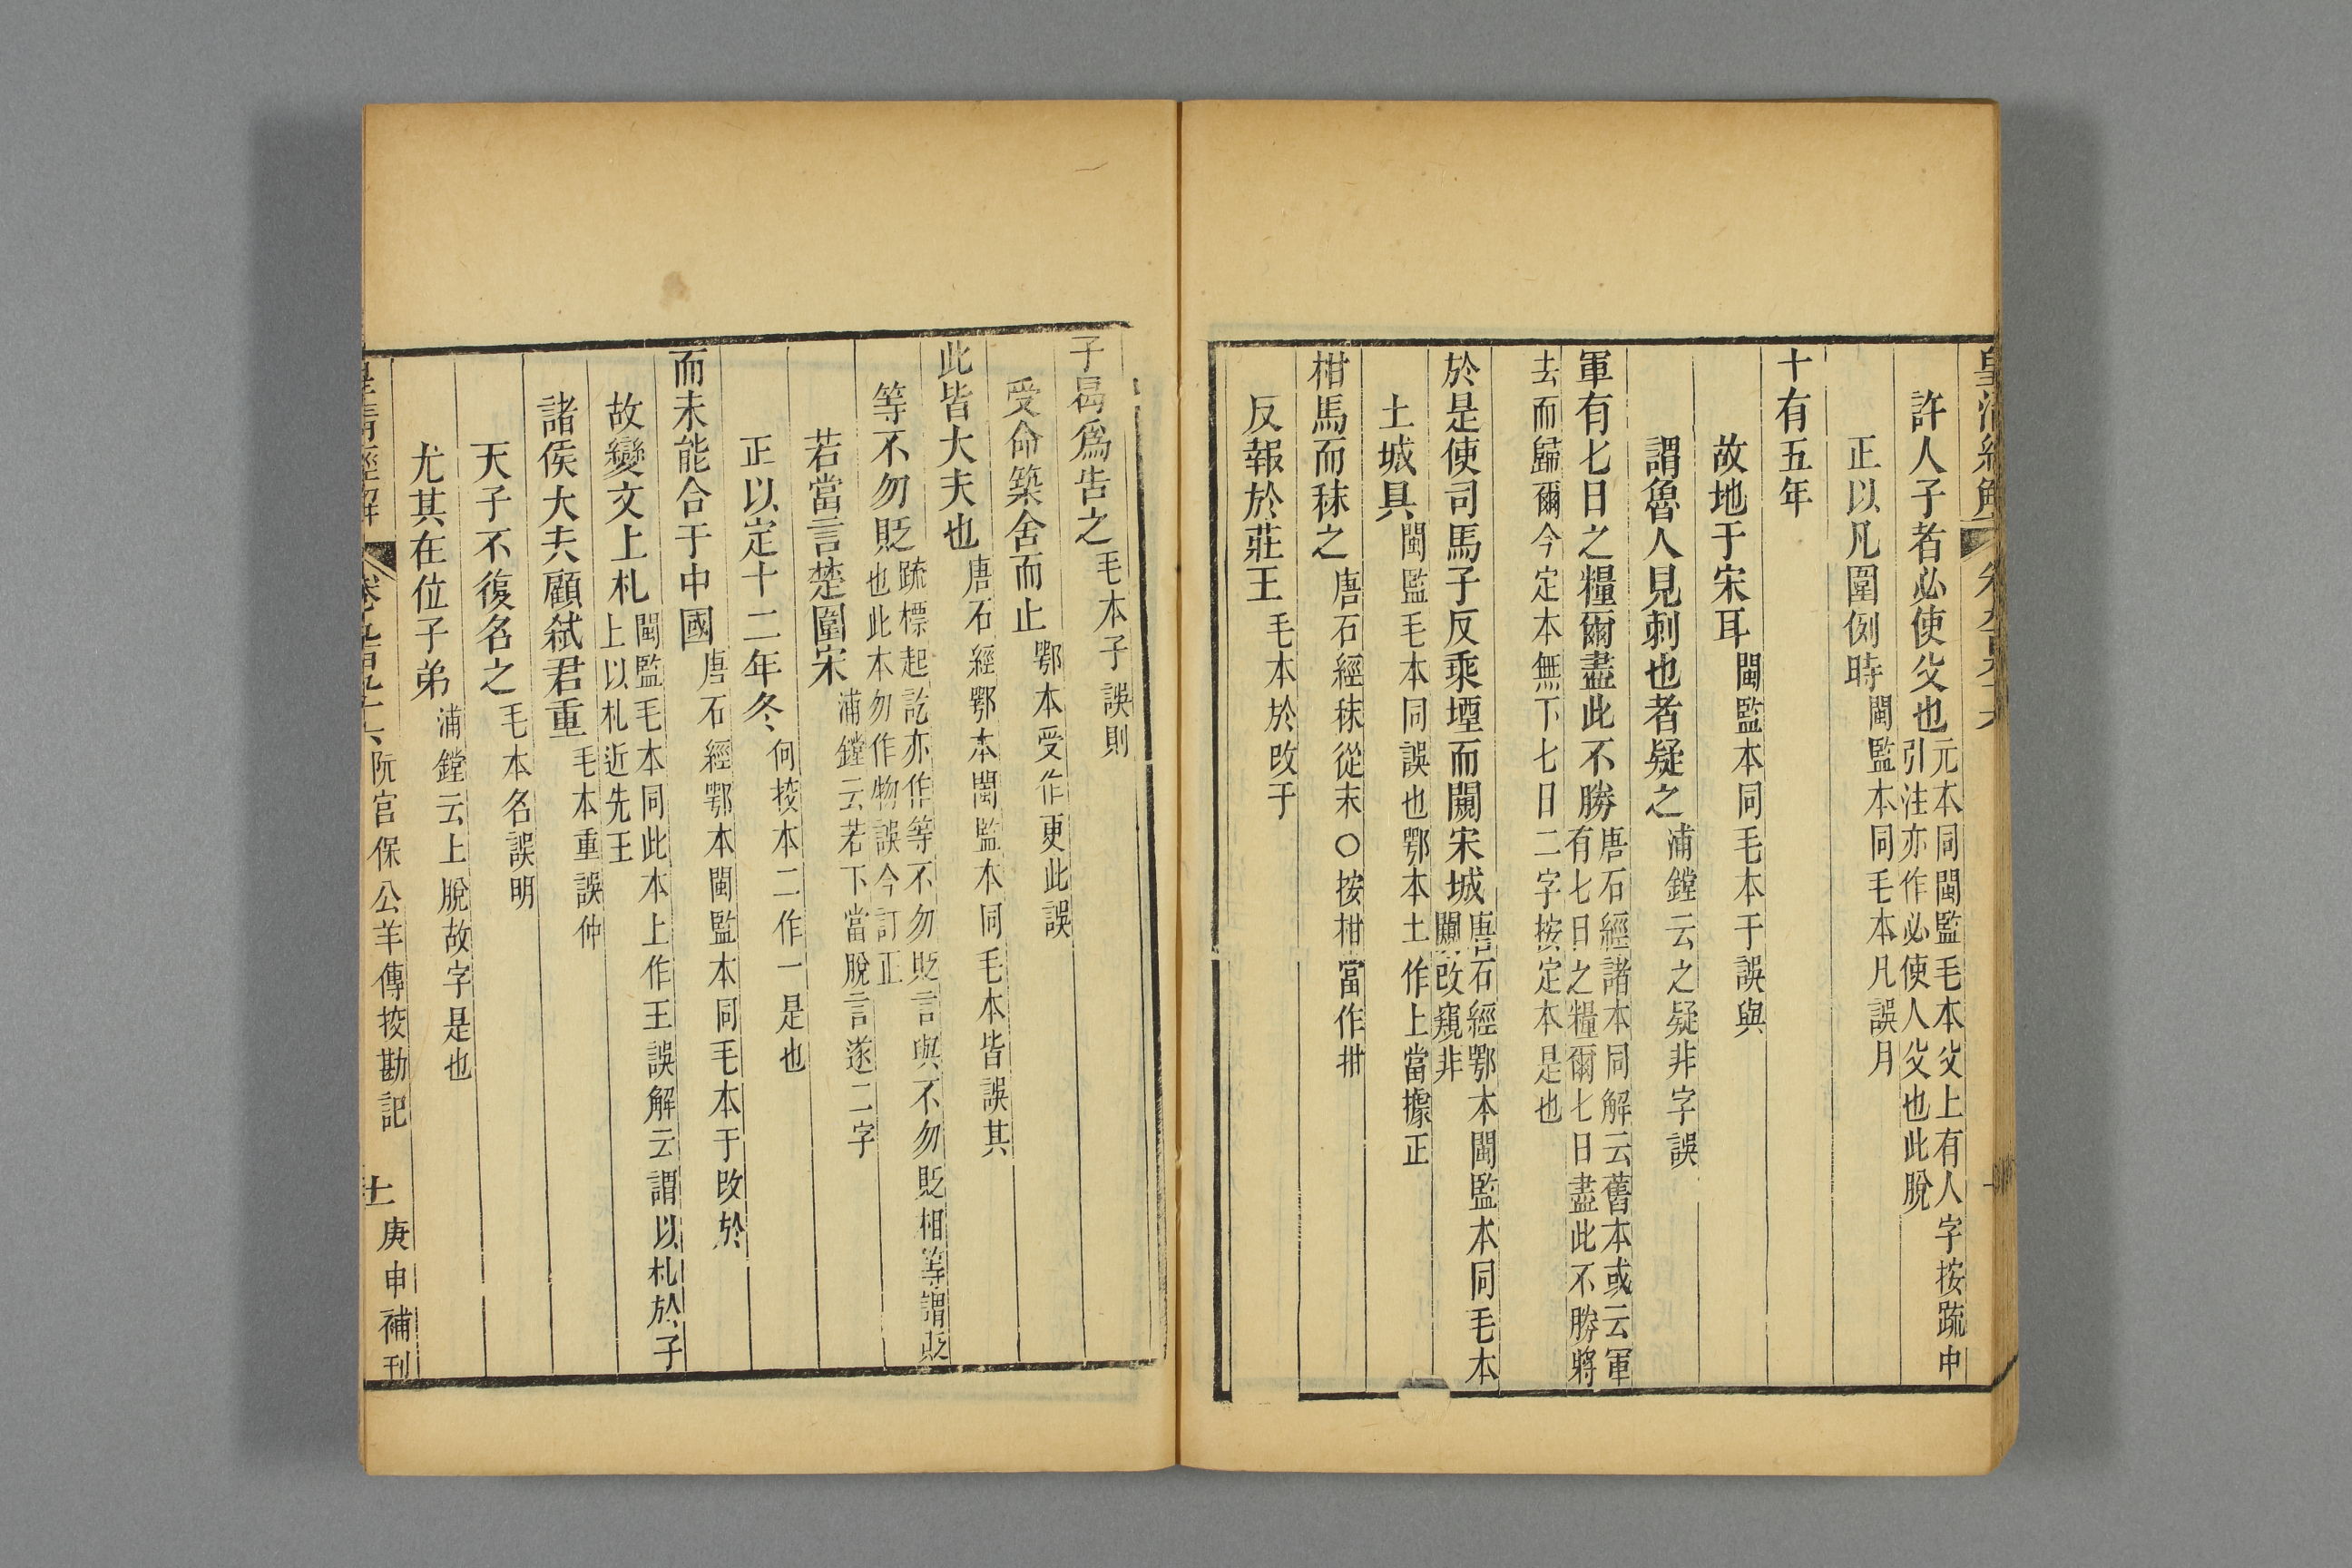 皇清經解 卷九百九十六
許人子者必使父也元本同閩監毛本父上有人字按疏中
引注亦作必使人父也此脫
正以凡圍例時閩監本同毛本凡誤月
十有五年
故地于宋耳閩監本同毛本于誤與
謂魯人見刺也者疑之浦鏜云之疑非字誤
軍有七日之糧爾盡此不勝唐石經諸本同解云舊本或云軍
有七日之糧爾七日盡此不勝將
去而歸爾今定本無下七日二字按定本是也
於是使司馬子反乘堙而闚宋城唐石經鄂本閩監本同毛本
闚改窺非
土城具閩監毛本同誤也鄂本土作上當據正
柑馬而秣之唐石經秣從末○按柑當作拑
反報於莊王毛本於改于
子曷爲告之毛本子誤則
受命築舍而止鄂本受作更此誤
此皆大夫也唐石經鄂本閩監本同毛本皆誤其
等不勿貶疏標起訖亦作等不勿貶言與不勿貶相等謂貶
也此本勿作物誤今訂正
若當言楚圍宋浦鏜云若下當脫言遂二字
正以定十二年冬何挍本二作一是也
而未能合于中國唐石經鄂本閩監本同毛本于改於
故變文上札閩監毛本同此本上作王誤解云謂以札於子
上以札近先王
諸侯大夫顧弒君重毛本重誤仲
天子不復名之毛本名誤明
尤其在位子弟浦鏜云上脫故字是也
皇清經解 卷九百九十六 阮宮保公羊傳挍勘記 十 庚申補刊